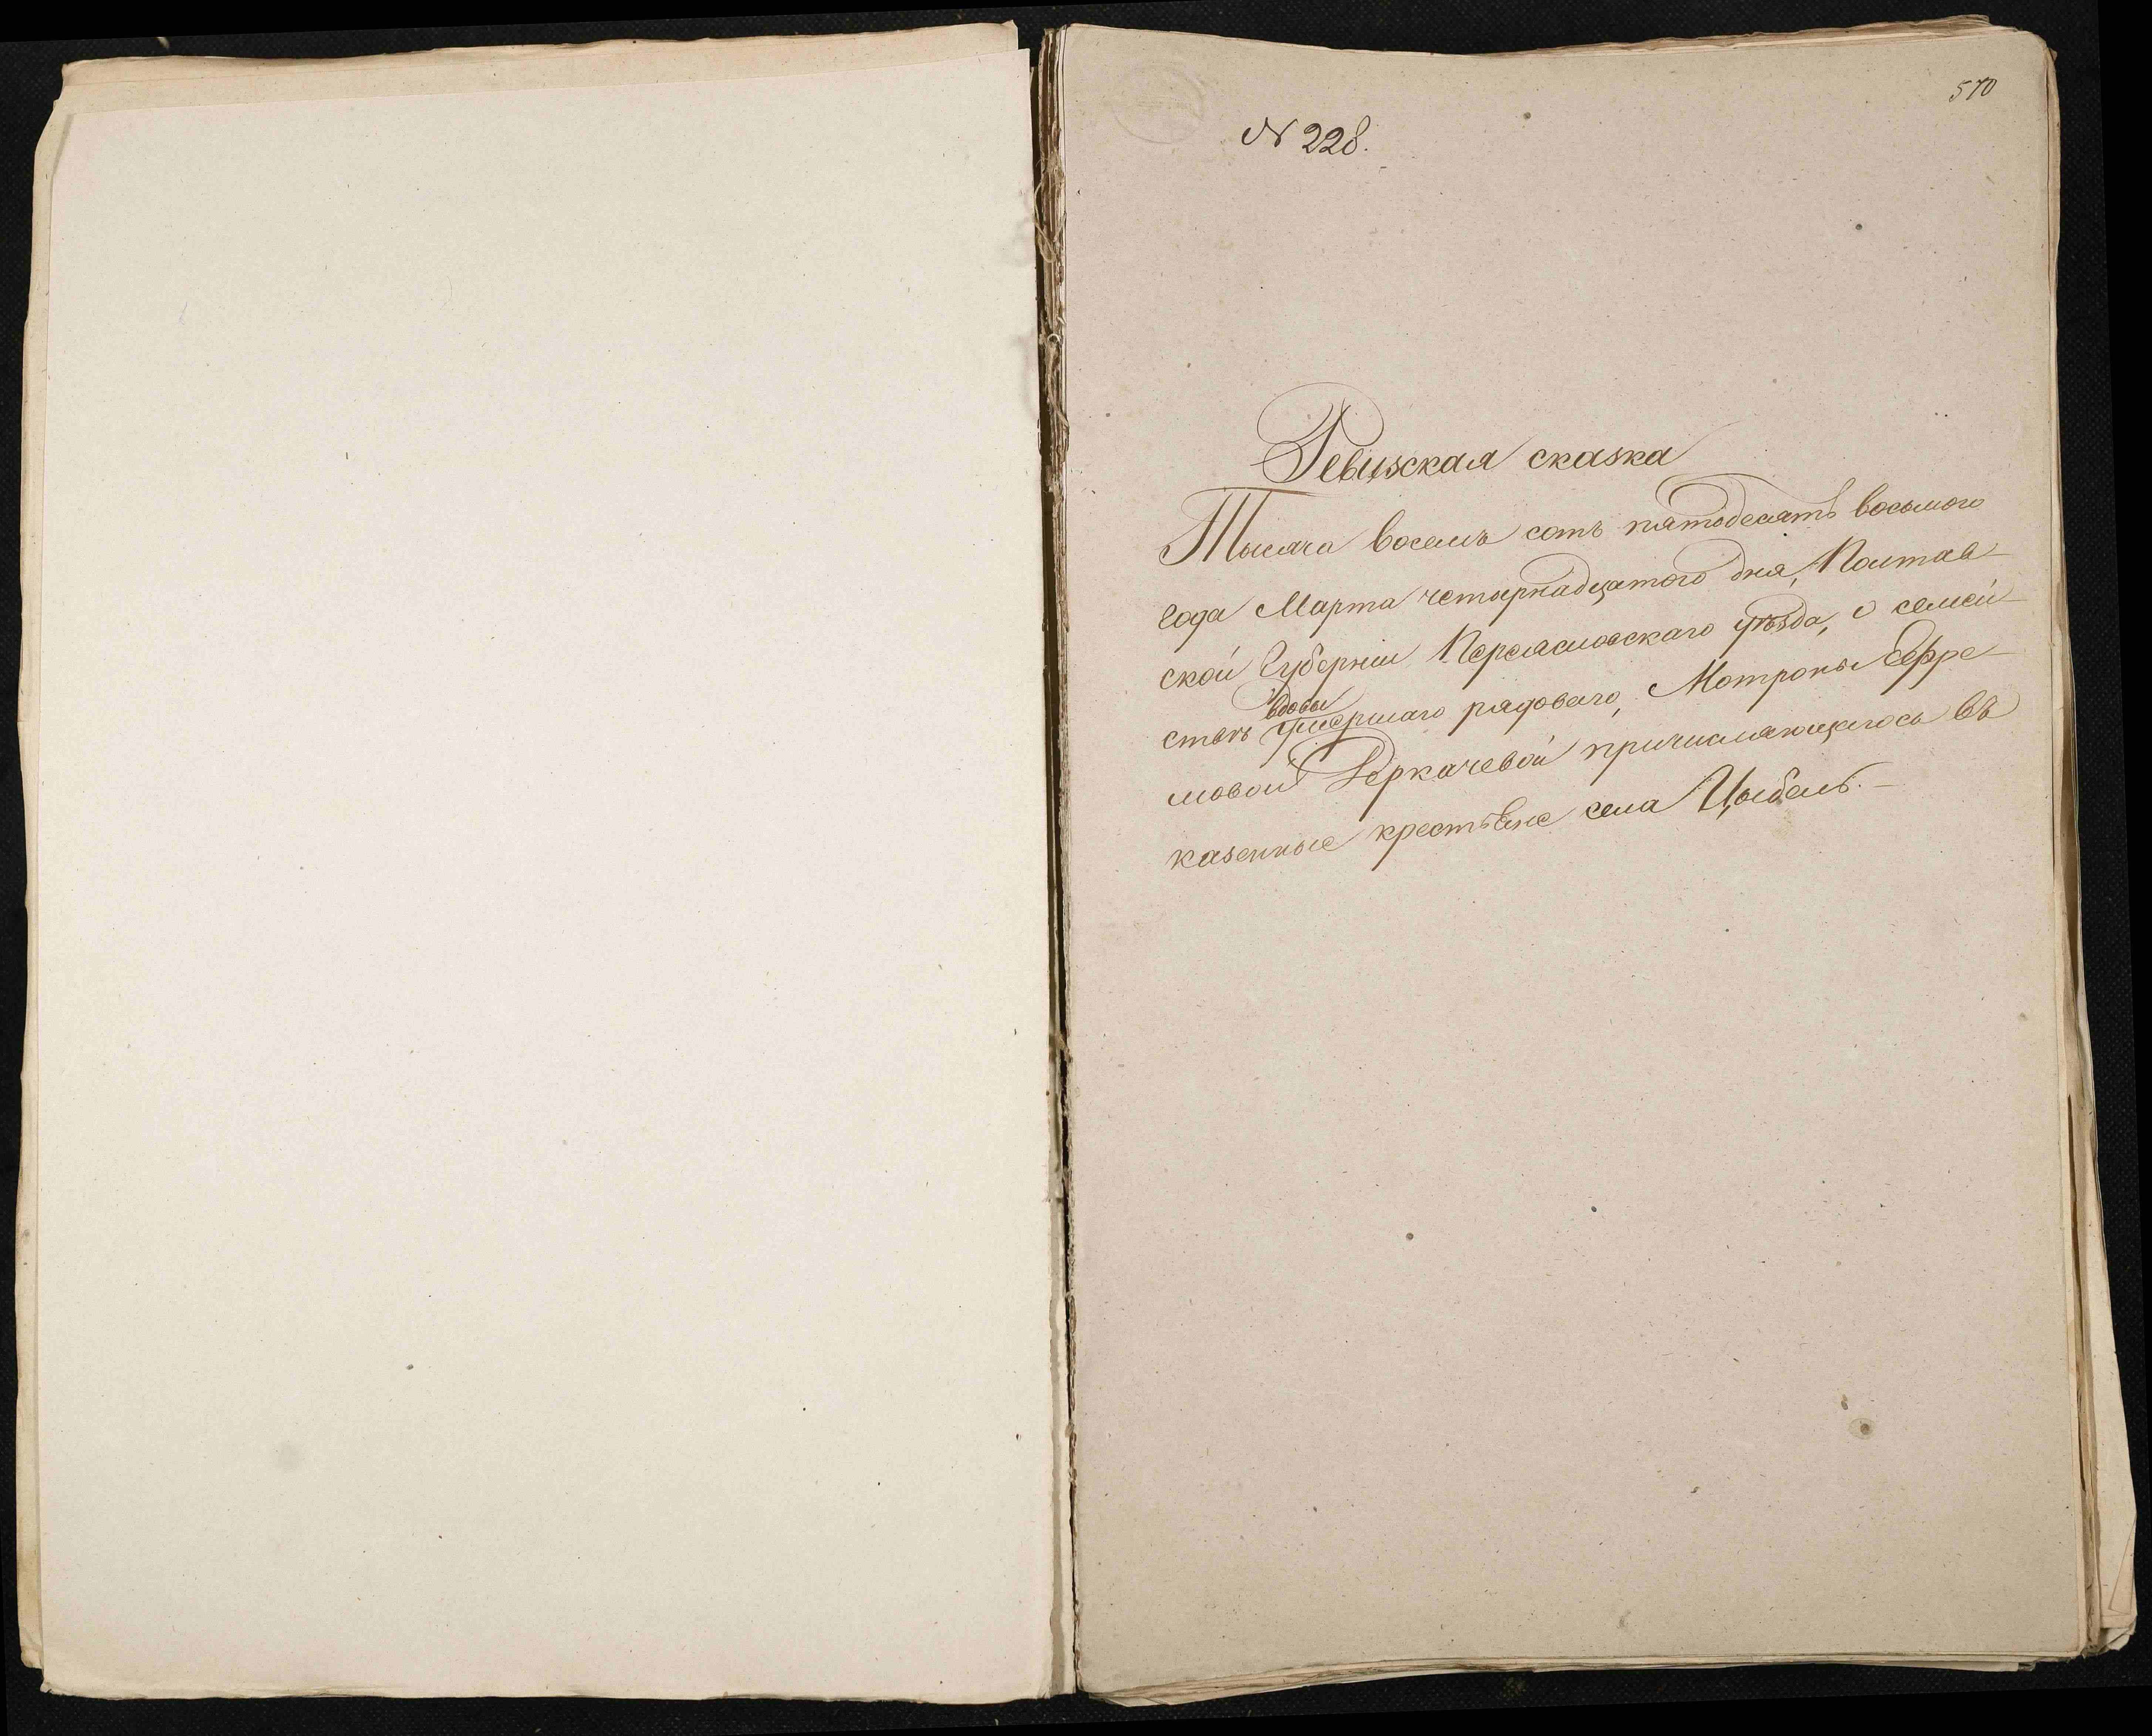 570
№ 228.
Ревизская сказка
Тысяча восемь сотъ пятьдесятъ восьмого
года Марта четырнадцатого дня, Полтав-
ской Губерніи Переяславскаго уѣзда, о семей-
вдовы
ствѣ умершаго рядоваго, Мотроны Ефре-
мовой Деркачевой причисляющагося въ
казенные крестьяне села Цыбель.-